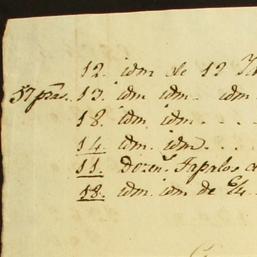 12. idm de 12
57 pzas. 13. idm idm. idm
18. idm. idm. . . .
14. idm. idm. . . .
11. Dozens. Sapatos
18. idm. idm de